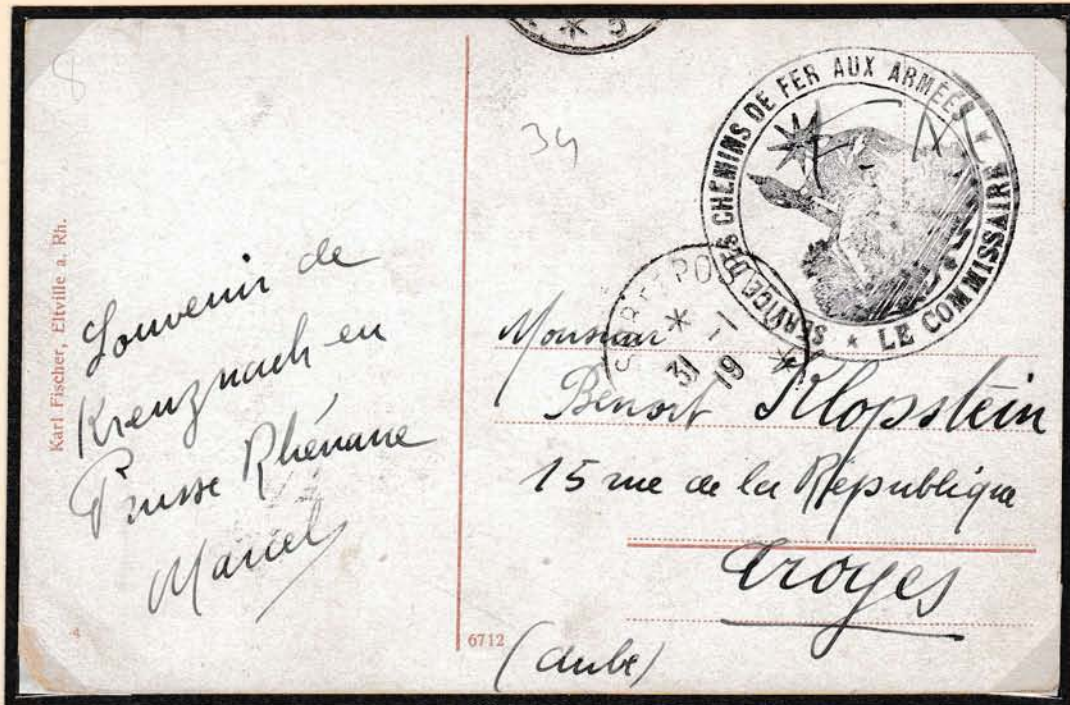 Karl Fischer, Eltville a. Rh.
4
8
Souvenir de
Kreuznach en
Prusse Rhénane
Marcel
6712
34
* 5
SERVICE DES CHEMINS DE FER AUX ARMÉES * LE COMMISSAIRE *
F M
* 31 -1 19 *
Monsieur
Benoit Klopstein
15 rue de la République
Troyes
(Aube)